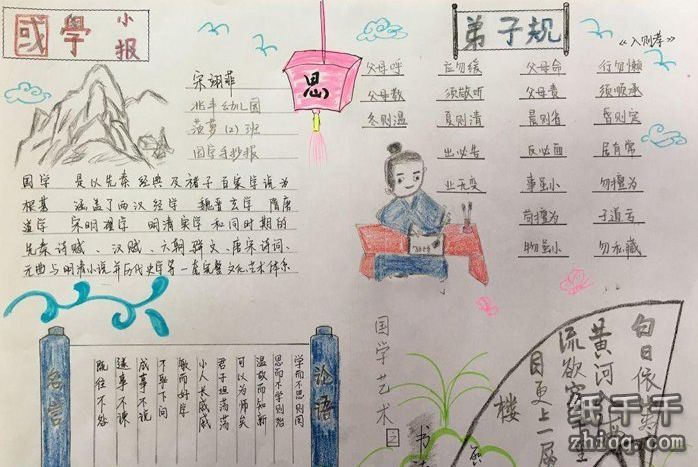 國學小报
宋诩菲
北丰幼儿园
菠萝(2)班
国学手抄报
国学 是以先秦经典及诸子百家学说为
根基 涵盖了两汉经学 魏晋玄学 隋唐
道学 宋明理学 明清实学和同时期的
先秦诗赋、汉赋、六朝骈文、唐宋诗词、
元曲与明清小说并历代史学等一套完整文化艺术体系
思
弟子规
《入则孝》
父母呼 应勿缓 父母命 行勿懒
父母教 须敬听 父母责 须顺承
冬则温 夏则凊 晨则省 昏则定
出必告 反必面 居有常
业无变 事虽小 勿擅为
苟擅为 子道亏
物虽小 勿私藏
论语
学而不思则罔
思而不学则殆
温故而知新
可以为师矣
君子坦荡荡
小人长戚戚
敏而好学
不耻下问
成事不说
遂事不谏
既往不咎
名言
国学艺术之
书法
白日依
黄河入
流欲穷
目更上一层
楼
纸千千
zhiqq.com